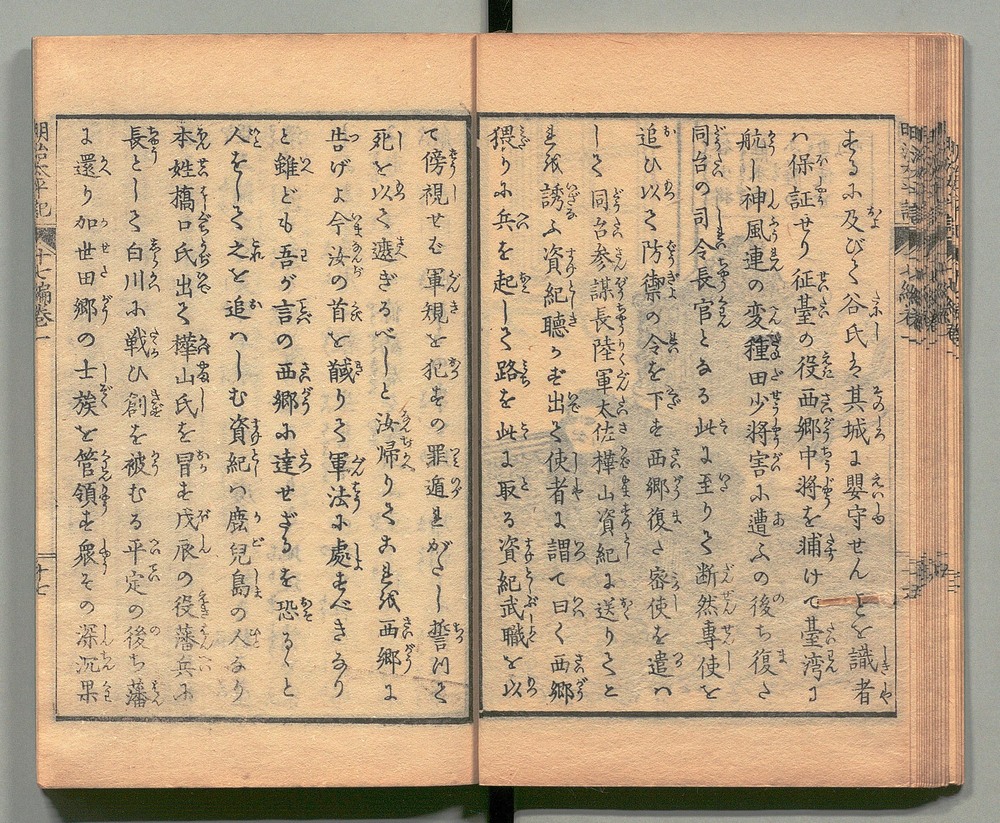 するに及びて谷氏は其城に嬰守せんことを識者
は保証せり征臺の役西郷中将を輔けて臺湾に
航し神風連の変種田少将害に遭ふの後ち復た
同台の司令長官となる此に至りて断然專使を
追ひ以て防禦の令を下す西郷復た密使を遣は
して同台参謀長陸軍大佐樺山資紀に送りてこ
れを誘ふ資紀聴かず出て使者に謂て曰く西郷
猥りに兵を起して路を此に取る資紀武職を以
て傍視せば軍規を犯すの罪遁れがたし誓つて
死を以て遮ぎるべしと汝帰りてこれを西郷に
告げよ今汝の首を馘りて軍法に處すべきなり
と雖ども吾が言の西郷に達せざるを恐るゝと
人をして之を追はしむ資紀は鹿児島の人なり
本姓橋口氏出て樺山氏を冒す戊辰の役藩兵に
長として白川に戦ひ創を被むる平定の後ち藩
に還り加世田郷の士族を管領す衆その深沉果
明治太平記
十七編巻一
十七